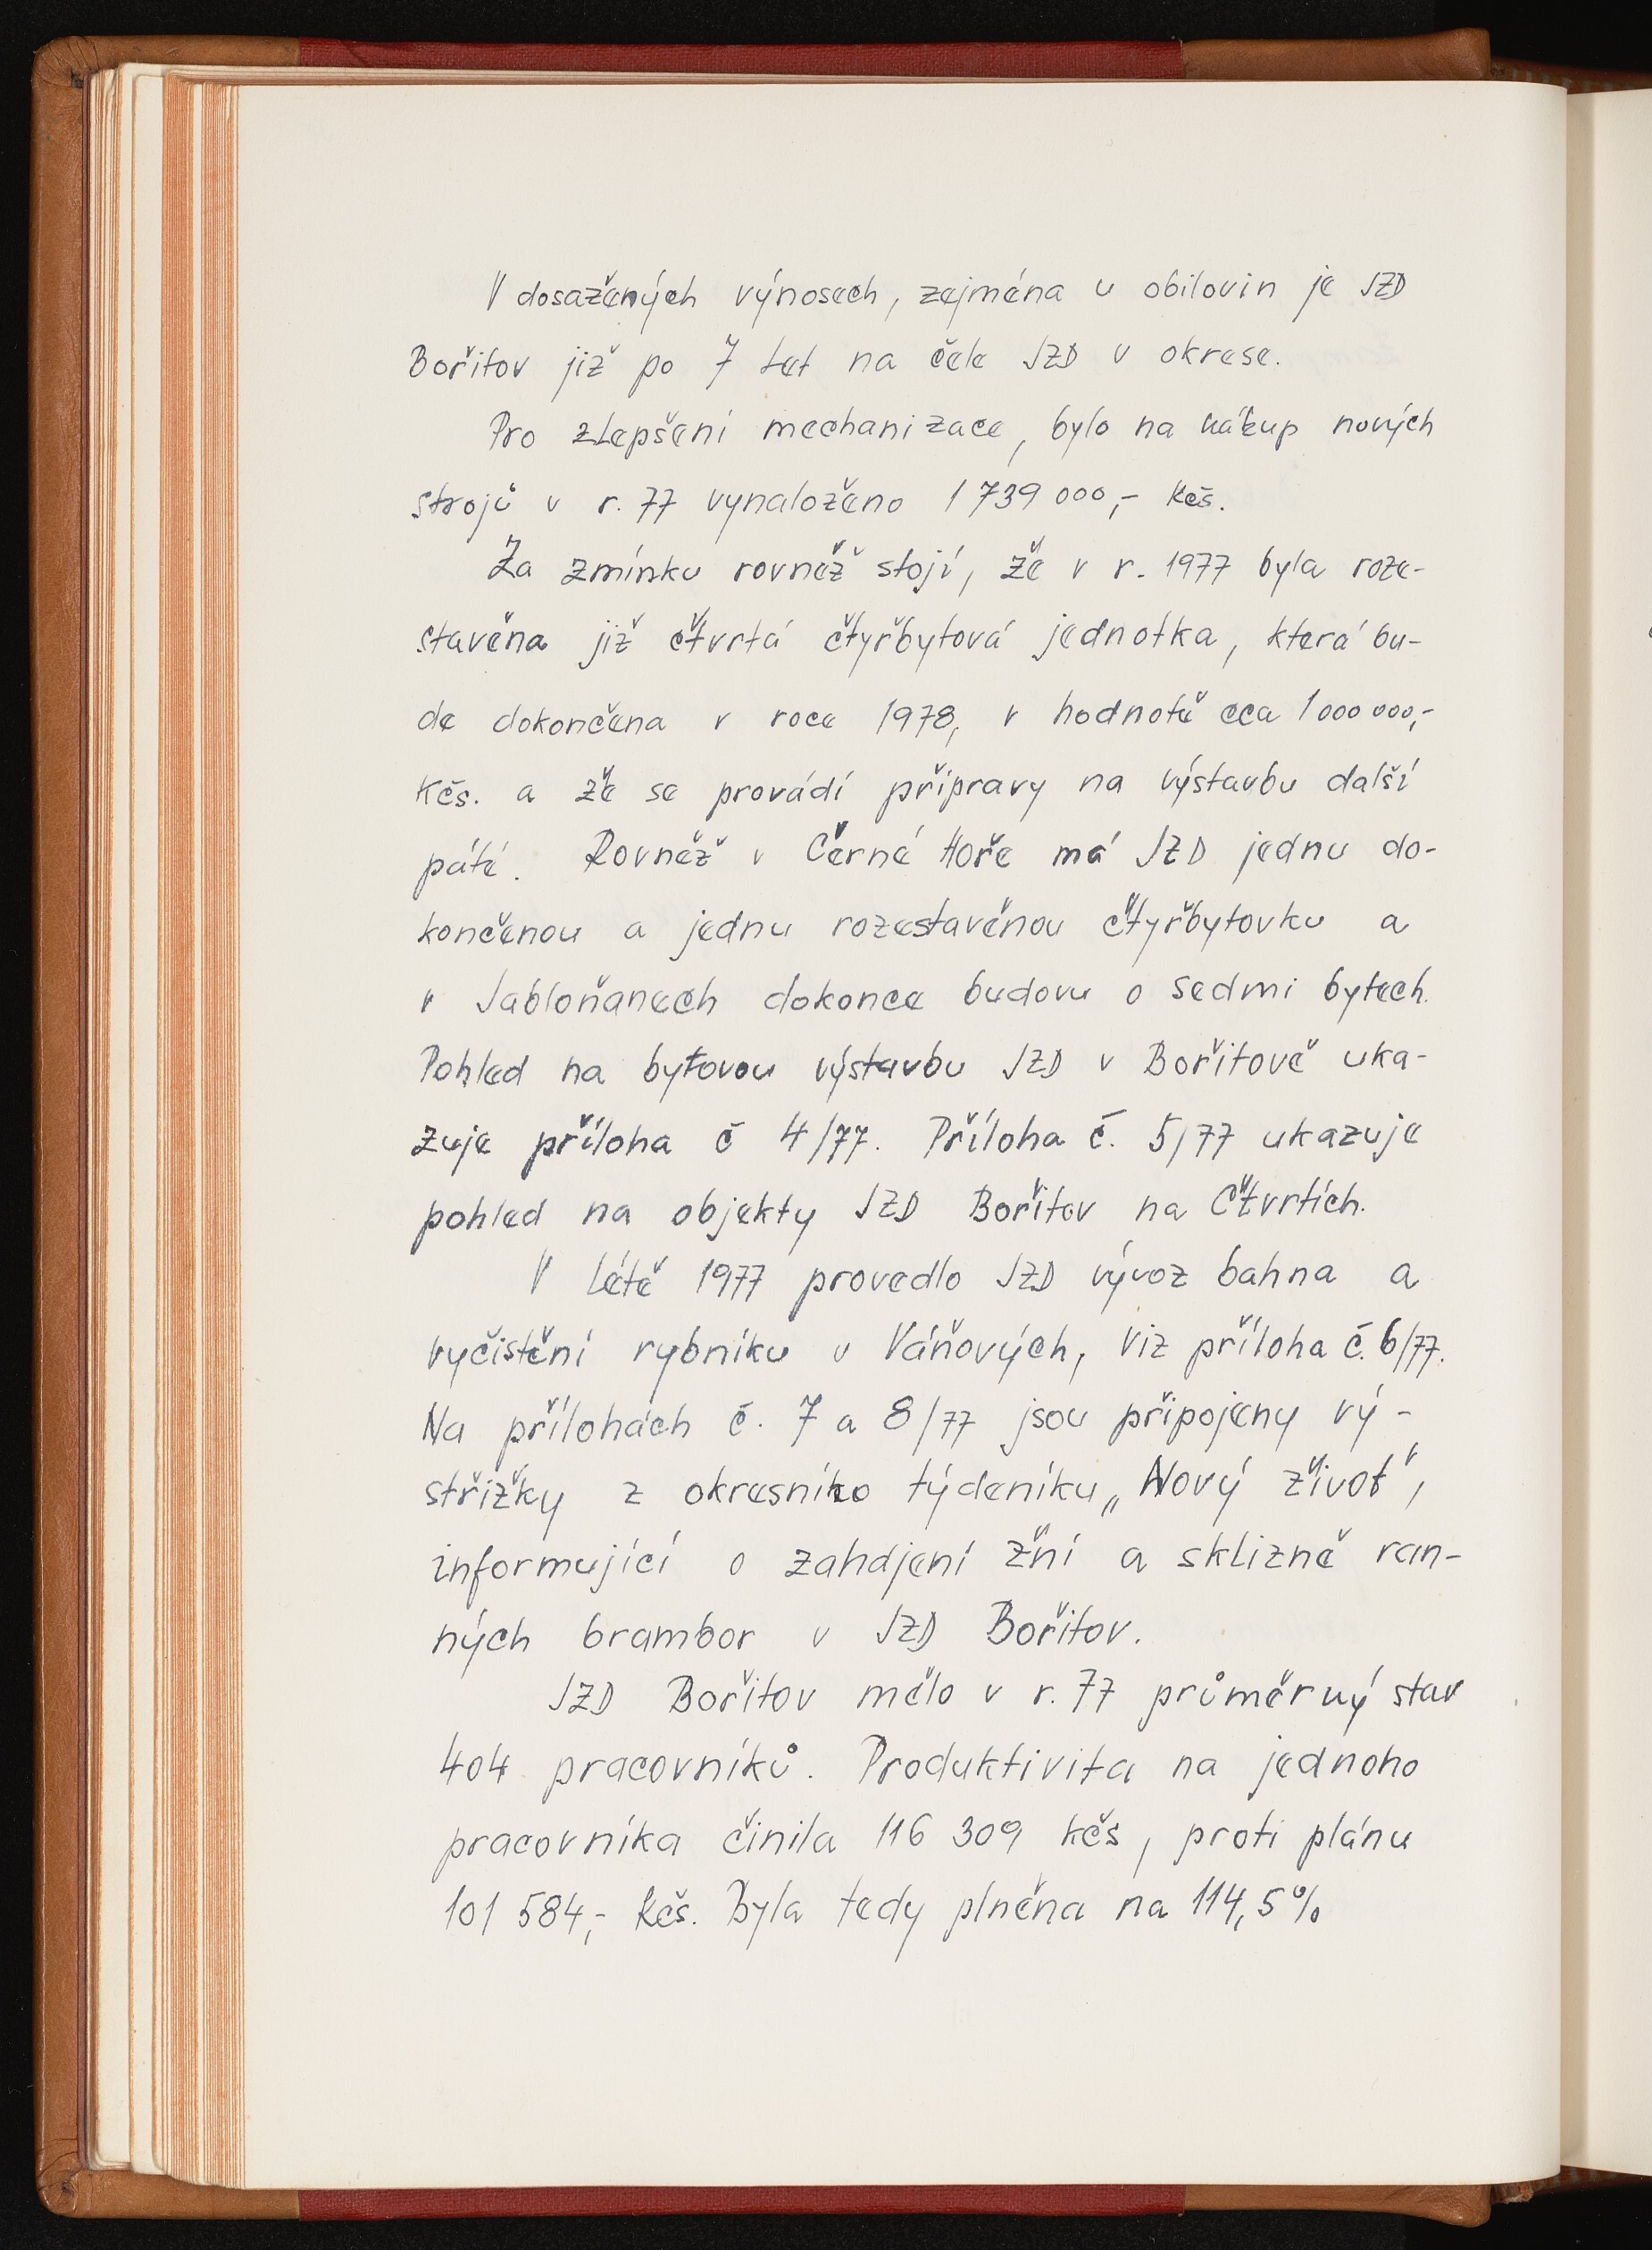 V dosažených výnosech, zejména u obilovin je JZD
Bořitov již po 7 let na čele JZD v okrese.
Pro zlepšení mechanizace, bylo na nákup nových
strojů v r. 77 vynaloženo 1 739 000,- Kčs.
Za zmínku rovněž stojí, že v r. 1977 byla roze-
stavěna již čtvrtá čtyřbytová jednotka, která bu-
de dokončena v roce 1978, v hodnotě cca 1 000 000,-
Kčs. a že se provádí přípravy na výstavbu další
páté. Rovněž v Černé Hoře má JZD jednu do-
končenou a jednu rozestavěnou čtyřbytovku a
v Jabloňanech dokonce budovu o sedmi bytech.
Pohled na bytovou výstavbu JZD v Bořitově uka-
zuje příloha č 4/77. Příloha č. 5/77 ukazuje
pohled na objekty JZD Bořitov na Čtvrtích.
V létě 1977 provedlo JZD vývoz bahna a
vyčistění rybníku v Váňových, viz příloha č. 6/77.
Na přílohách č. 7 a 8/77 jsou připojeny vý-
střižky z okresního týdeníku „Nový život",
informující o zahájení žní a sklizně ran-
ných brambor v JZD Bořitov.
JZD Bořitov mělo v r. 77 průměrný stav
404 pracovníků. Produktivita na jednoho
pracovníka činila 116 309 Kčs, proti plánu
101 584,- Kčs. Byla tedy plněna na 114,5%